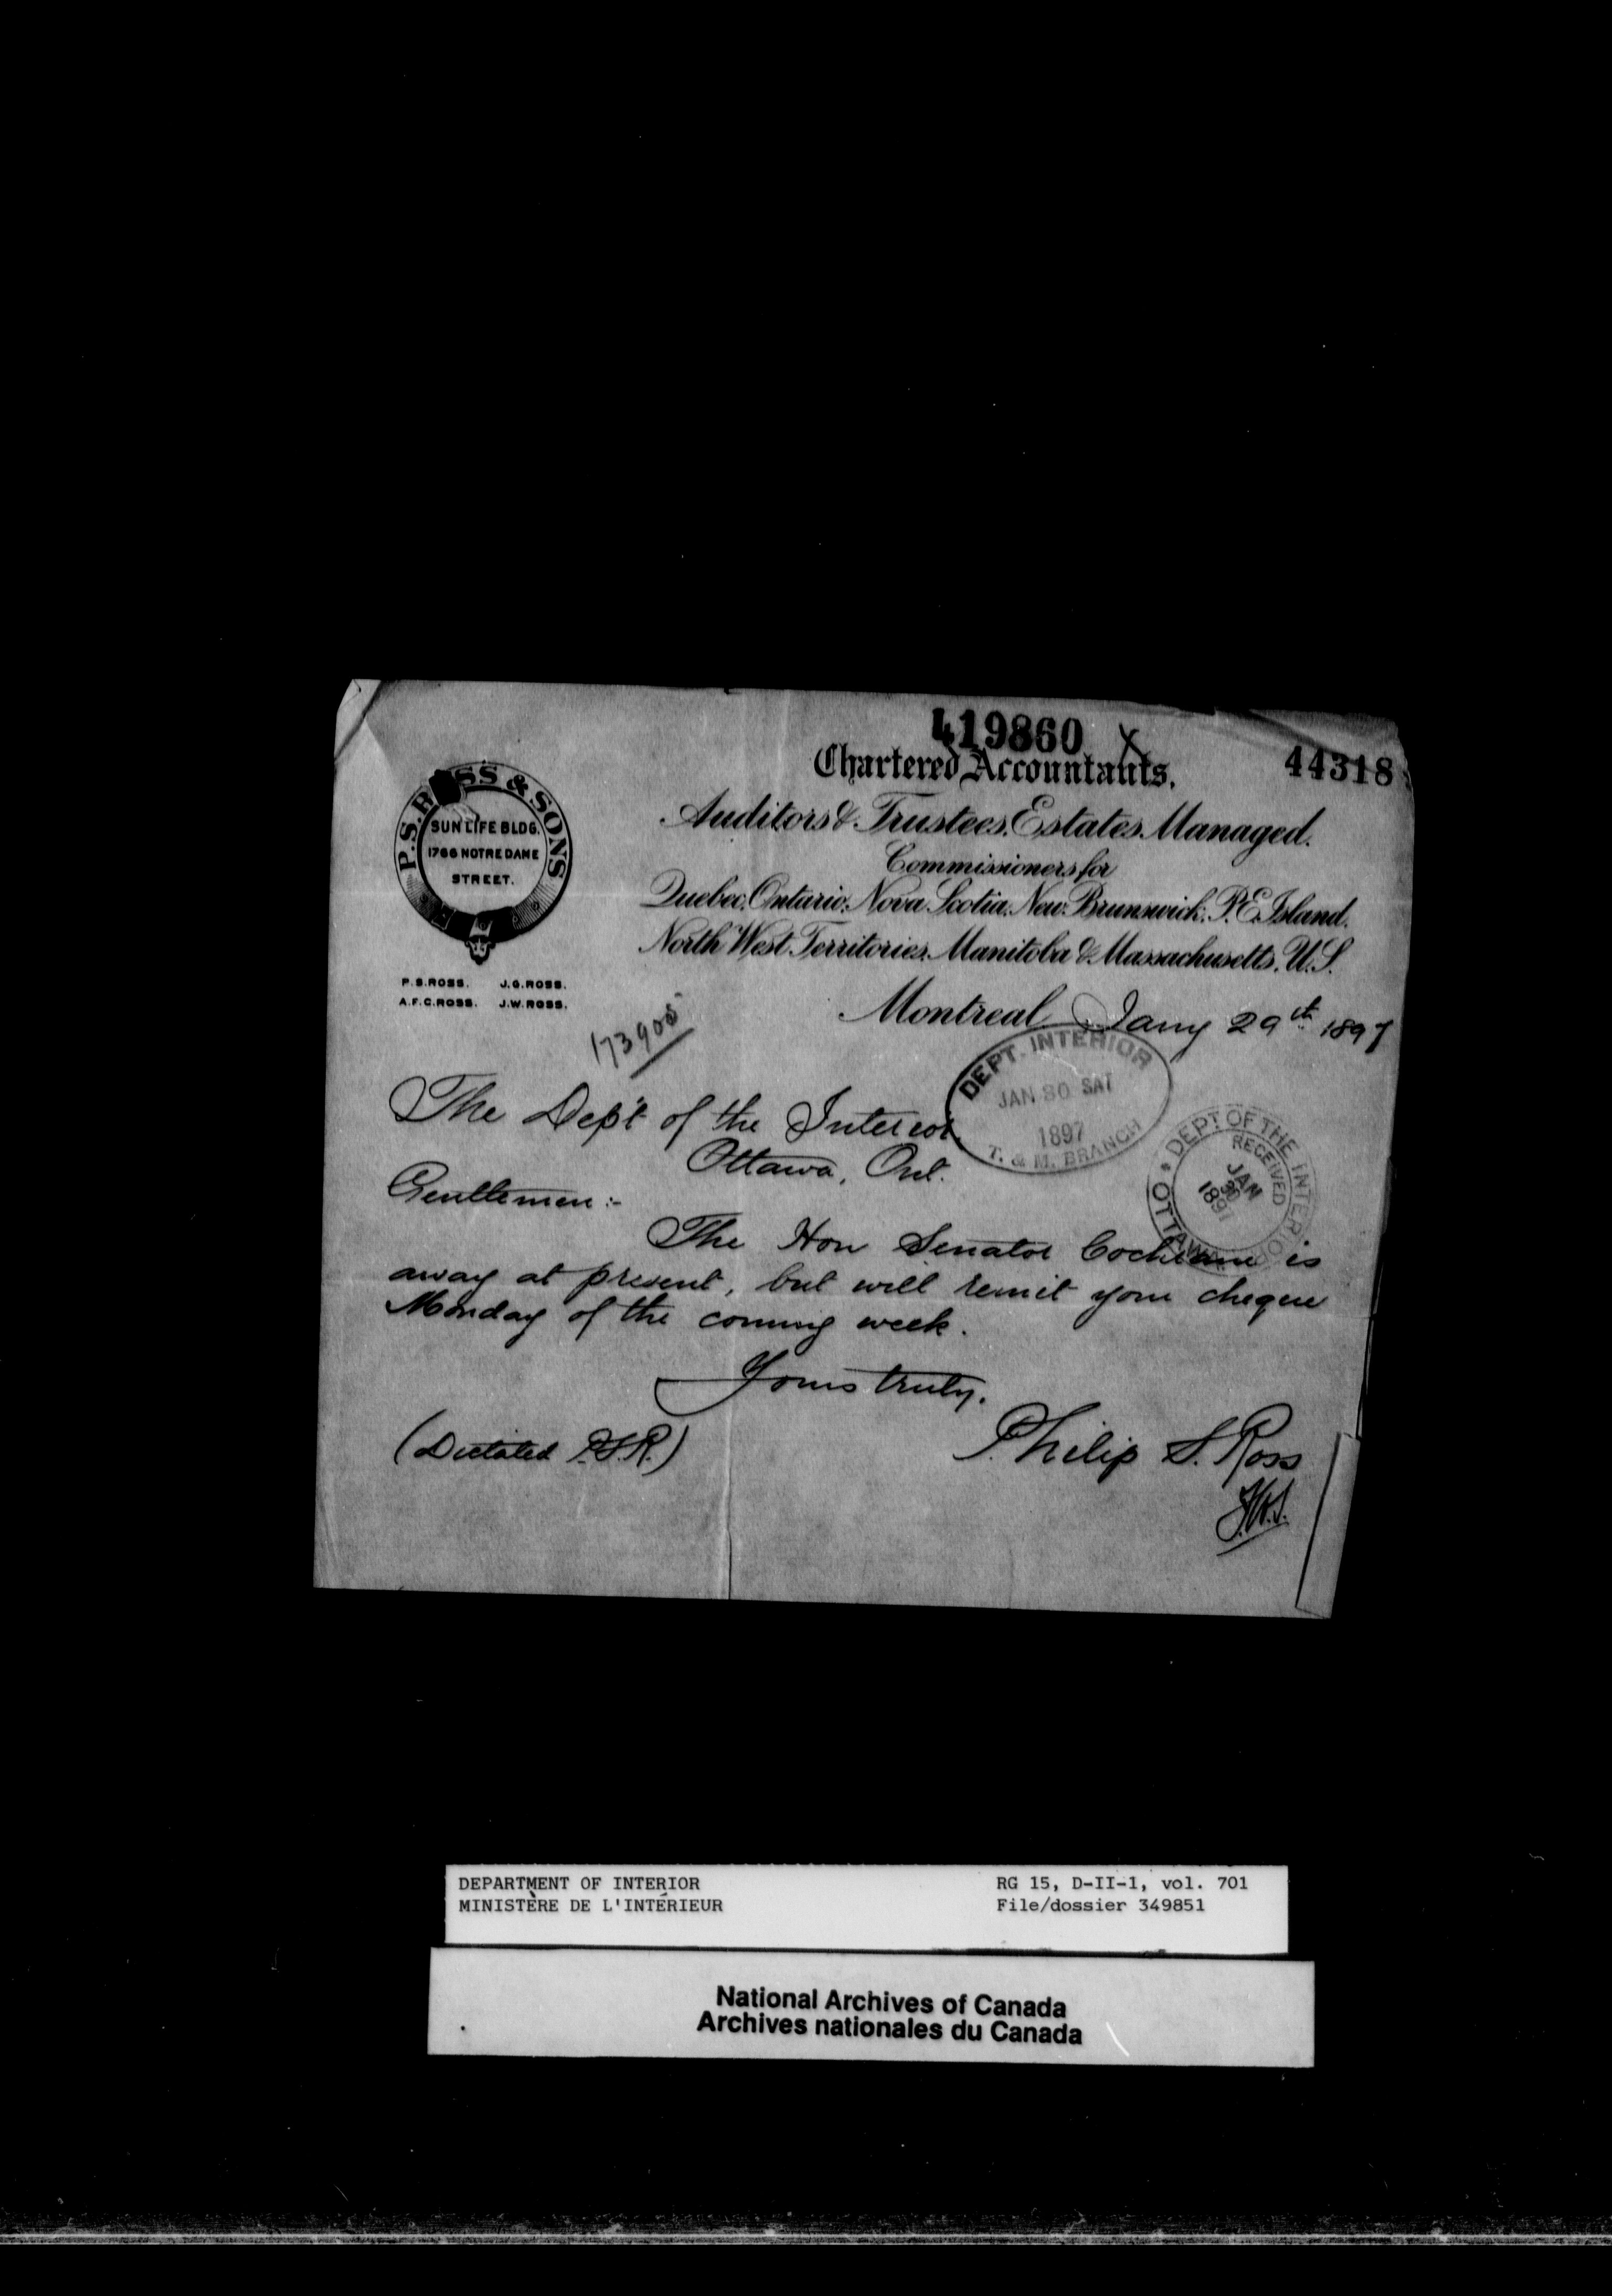 419860 X
44318
Chartered Accountants.
P.S. ROSS & SONS
SUN LIFE BLDG.
1766 NOTRE DAME
STREET.
P.S.ROSS. J.G.ROSS.
A.F.C.ROSS. J.W.ROSS.
Auditors & Trustees. Estates Managed.
Commissioners for
Quebec, Ontario, Nova Scotia, New Brunswick, P.E. Island.
North West Territories, Manitoba & Massachusetts, U.S.
Montreal Jany 29th 1897
173905
DEPT. INTERIOR
JAN 30 SAT
1897
T. & M. BRANCH
DEPT OF THE INTERIOR
RECEIVED
JAN
30
1897
OTTAWA
The Dep't of the Interior
Ottawa, Ont.
Gentlemen:-
The Hon Senator Cochrane is
away at present, but will remit your cheque
Monday of the coming week.
Yours truly.
(Dictated P.S.R.)
Philip S. Ross
DEPARTMENT OF INTERIOR
MINISTÈRE DE L'INTÉRIEUR
RG 15, D-II-1, vol. 701
File/dossier 349851
National Archives of Canada
Archives nationales du Canada